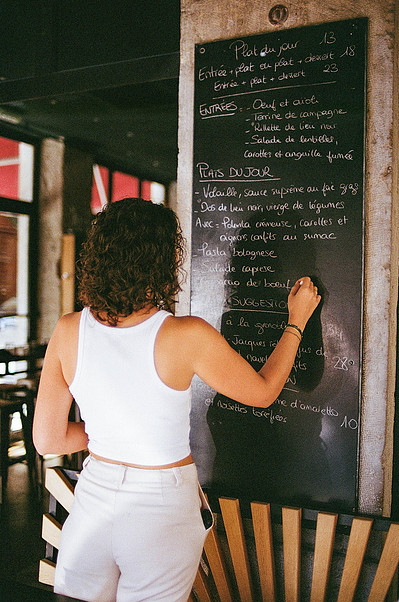 Plat du jour 13
Entrée + plat ou plat + dessert 18
Entrée + plat + dessert 23
ENTRÉES = - Oeuf et aïoli
- Terrine de campagne
- Rillette de lieu noir
- Salade de lentilles,
carottes et anguille fumée
PLATS DU JOUR
- Volaille, sauce suprême au foie gras
- Dos de lieu noir, vierge de légumes
Avec = Polenta crémeuse, carottes et
oignons confits au sumac
Pasta bolognese
Salade caprese
de boeuf
SUGGESTION
à la
Jacques jus de
28
d'amaretto
et noisettes torréfiées 10